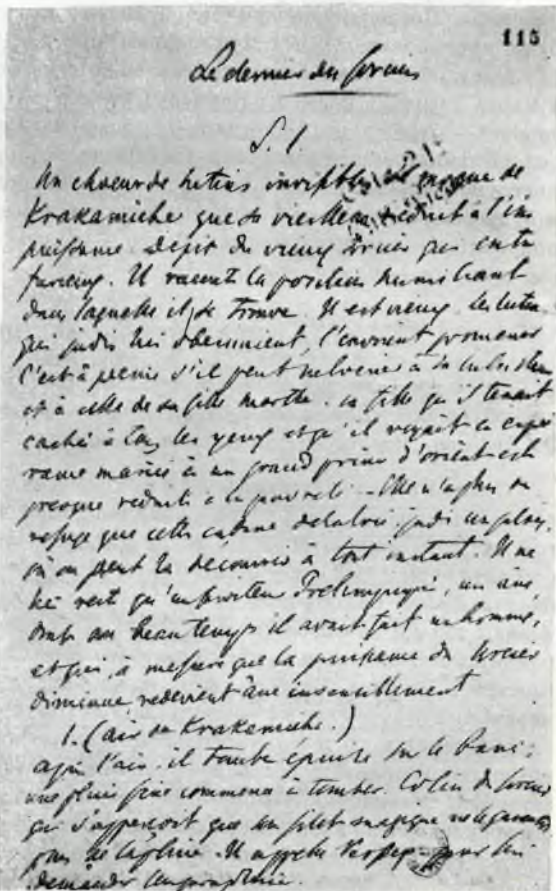 115
Le dernier des sorciers
S. 1.
Un choeur de lutins invisibles se moque de
Krakamiche que sa vieillesse réduit à l'im
puissance. Dépit du vieux sorcier qui entre
Il raconte la position humiliante
dans laquelle il se trouve. Il est vieux. Les lutins
qui jadis lui obéissaient,
C'est à peine s'il peut subvenir à sa subsistance
et à celle de sa fille. sa fille qu'il tenait
caché à tous les yeux et qu'il voyait en espé
rance mariée à un grand prince d'orient est
presque réduite à la pauvreté. Elle n'a plus de
refuge que cette cabane délabrée jadis un palais,
où on peut la découvrir à tout instant. Il ne
lui reste qu'un un âne,
dont au beau temps il avait fait un homme,
et qui, à mesure que la puissance du sorcier
diminue, redevient âne insensiblement
1. (air de Krakamiche.)
après l'air. il tombe épuisé sur le banc:
une pluie fine commence à tomber.
qui s'apperçoit que un filet magique ne le garantit
plus de la pluie. Il appelle pour lui
demander